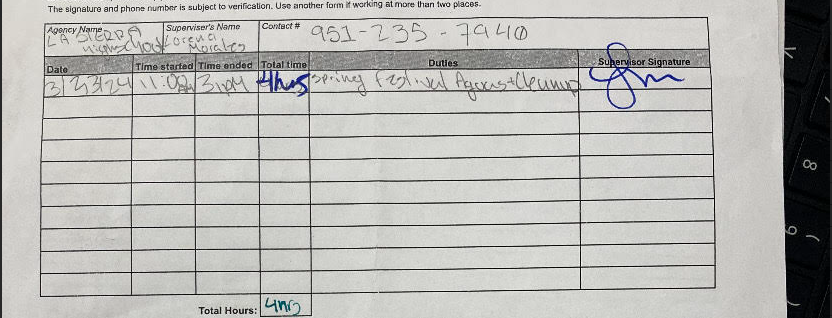 The signature and phone number is subject to verification. Use another form if working at more than two places.
Agency Name Supervisor's Name Contact # 951-235-7940
LA SIERRA Lorena
highschool Morales
Date Time started Time ended Total time Duties Supervisor Signature
3/23/24 11:00AM 3PM 4hrs Spring Festival Cleanup
Total Hours: 4hrs